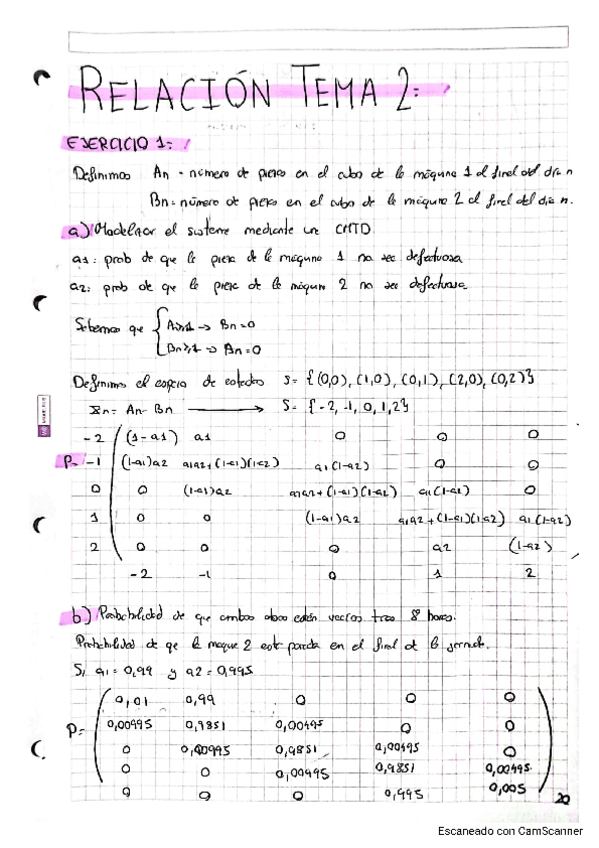 RELACIÓN TEMA 2:
EJERCICIO 1:
Definimos An = número de piezas en el cubo de la máquina 1 al final del día n
Bn = número de piezas en el cubo de la máquina 2 al final del día n.
a) Modelizar el sistema mediante una CMTD
a1: prob de que la pieza de la máquina 1 no sea defectuosa
a2: prob de que la pieza de la máquina 2 no sea defectuosa
Sabemos que { An≥1 → Bn=0
Bn≥1 → Bn=0
Definimos el espacio de estados S = {(0,0), (1,0), (0,1), (2,0), (0,2)}
Xn = An - Bn → S = {-2, -1, 0, 1, 2}
-2 (1-a1) a1 0 0 0
P= -1 (1-a1)a2 a1a2+(1-a1)(1-a2) a1(1-a2) 0 0
0 0 (1-a1)a2 a1a2+(1-a1)(1-a2) a1(1-a2) 0
1 0 0 (1-a1)a2 a1a2+(1-a1)(1-a2) a1(1-a2)
2 0 0 0 a2 (1-a2)
-2 -1 0 1 2
b) Probabilidad de que ambos cubos estén vacíos tras 8 horas.
Probabilidad de que la maqu 2 este parada en el final de la jornada.
Si a1 = 0,99 y a2 = 0,995
0,01 0,99 0 0 0
P= 0,00995 0,9851 0,00495 0 0
0 0,00995 0,9851 0,00495 0
0 0 0,00495 0,9851 0,00495
0 0 0 0,995 0,005
20
Escaneado con CamScanner